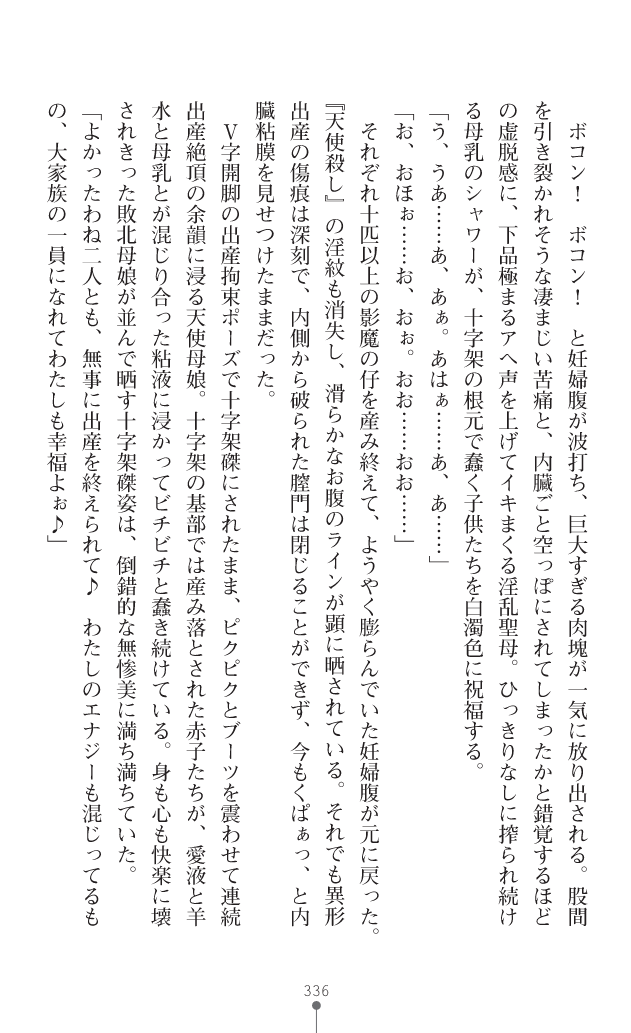 ボコン！　ボコン！　と妊婦腹が波打ち、巨大すぎる肉塊が一気に放り出される。股間
を引き裂かれそうな凄まじい苦痛と、内臓ごと空っぽにされてしまったかと錯覚するほど
の虚脱感に、下品極まるアヘ声を上げてイキまくる淫乱聖母。ひっきりなしに搾られ続け
る母乳のシャワーが、十字架の根元で蠢く子供たちを白濁色に祝福する。
「う、うあ……あ、あぁ。あはぁ……あ、あ……」
「お、おほぉ……お、おぉ。おお……おお……」
それぞれ十匹以上の影魔の仔を産み終えて、ようやく膨らんでいた妊婦腹が元に戻った。
『天使殺し』の淫紋も消失し、滑らかなお腹のラインが顕に晒されている。それでも異形
出産の傷痕は深刻で、内側から破られた膣門は閉じることができず、今もくぱぁっ、と内
臓粘膜を見せつけたままだった。
Ｖ字開脚の出産拘束ポーズで十字架磔にされたまま、ピクピクとブーツを震わせて連続
出産絶頂の余韻に浸る天使母娘。十字架の基部では産み落とされた赤子たちが、愛液と羊
水と母乳とが混じり合った粘液に浸かってビチビチと蠢き続けている。身も心も快楽に壊
されきった敗北母娘が並んで晒す十字架磔姿は、倒錯的な無惨美に満ち満ちていた。
「よかったわね二人とも、無事に出産を終えられて♪　わたしのエナジーも混じってるも
の、大家族の一員になれてわたしも幸福よぉ♪」
336